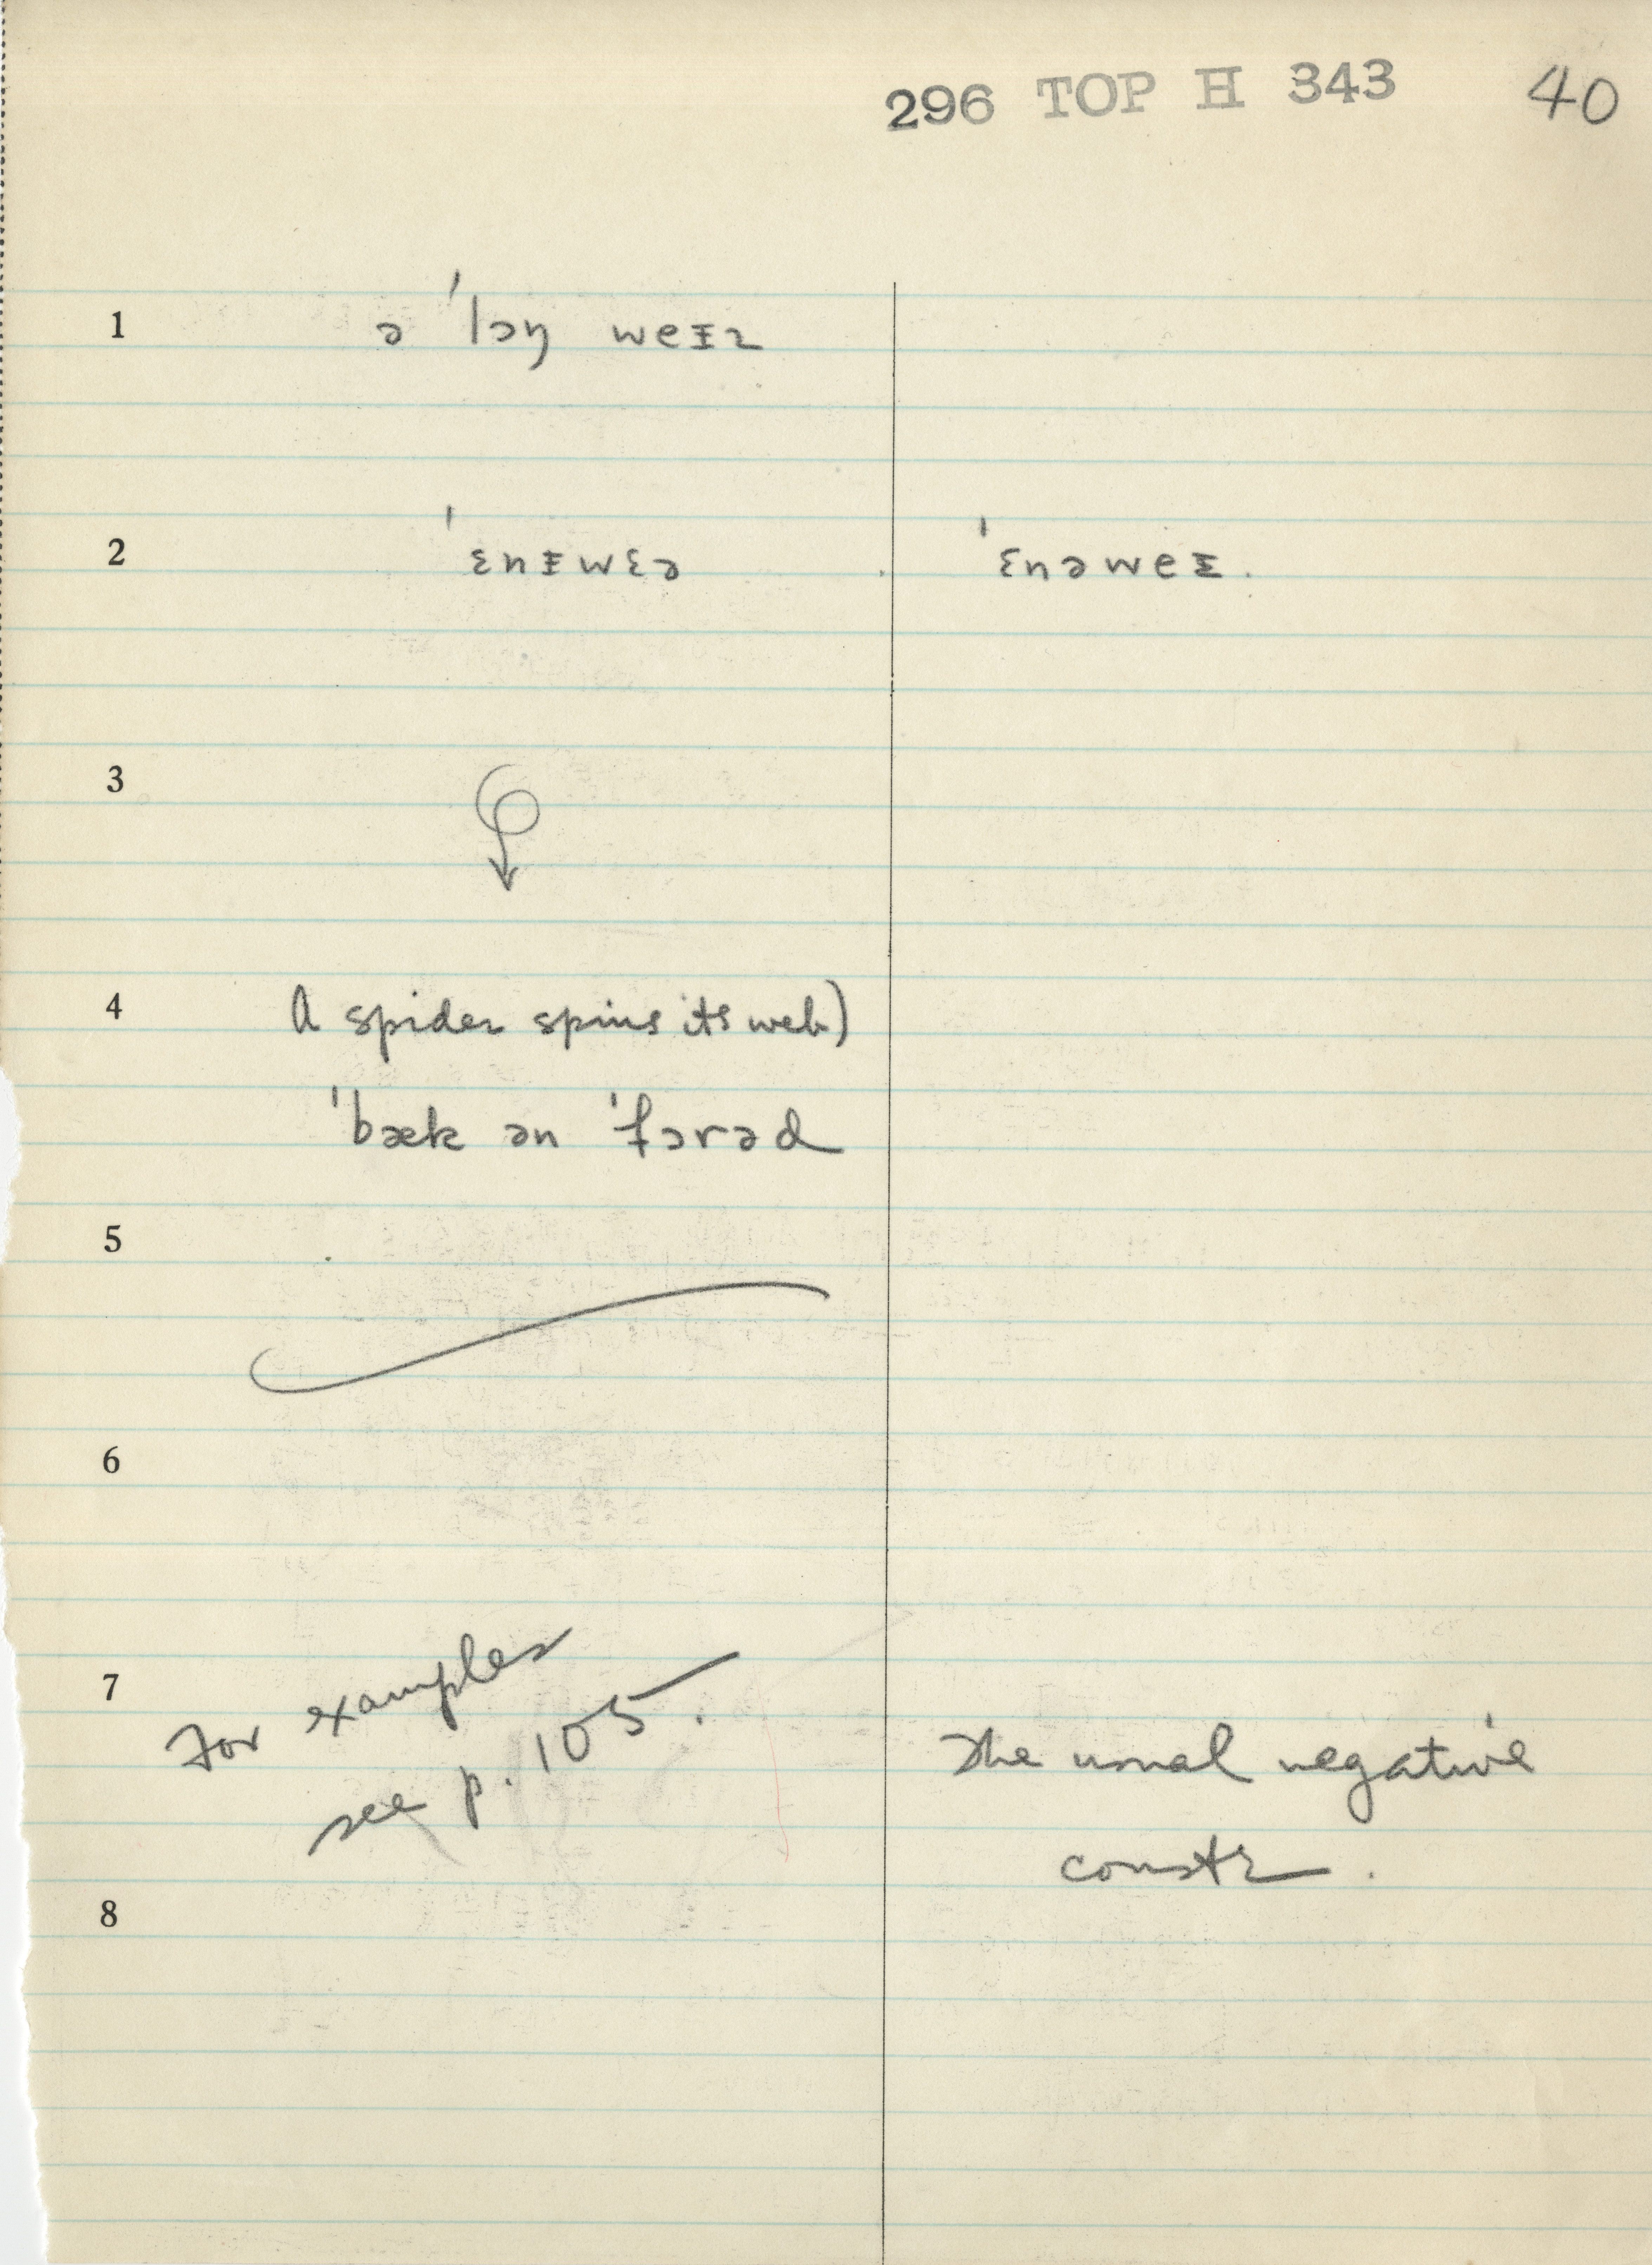 296 TOP H 343 40
1 ə ˈlɔŋ weɪz
2 ˈɛnɪwɛə ˈɛnəweɪ.
3
4 A spider spins its web)
ˈbæk ən ˈfɔrəd
5
6
7 For examples
see p. 105.
The usual negative
constr.
8